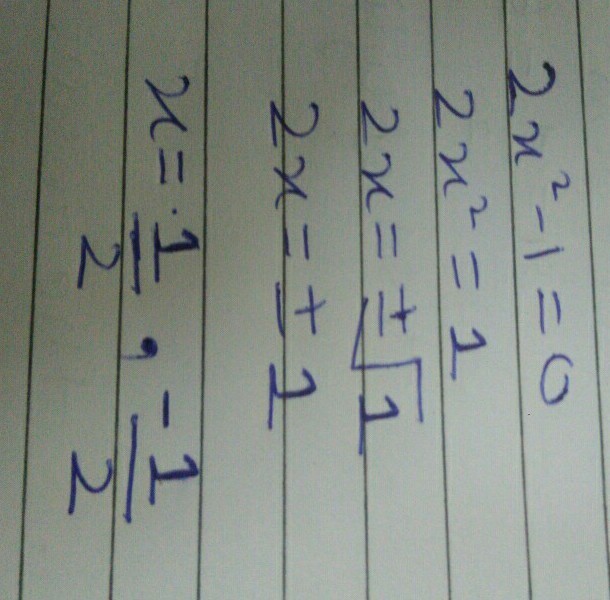 2x² - 1 = 0
2x² = 1
2x = ±√1
2x = ± 1
x = 1/2 , -1/2